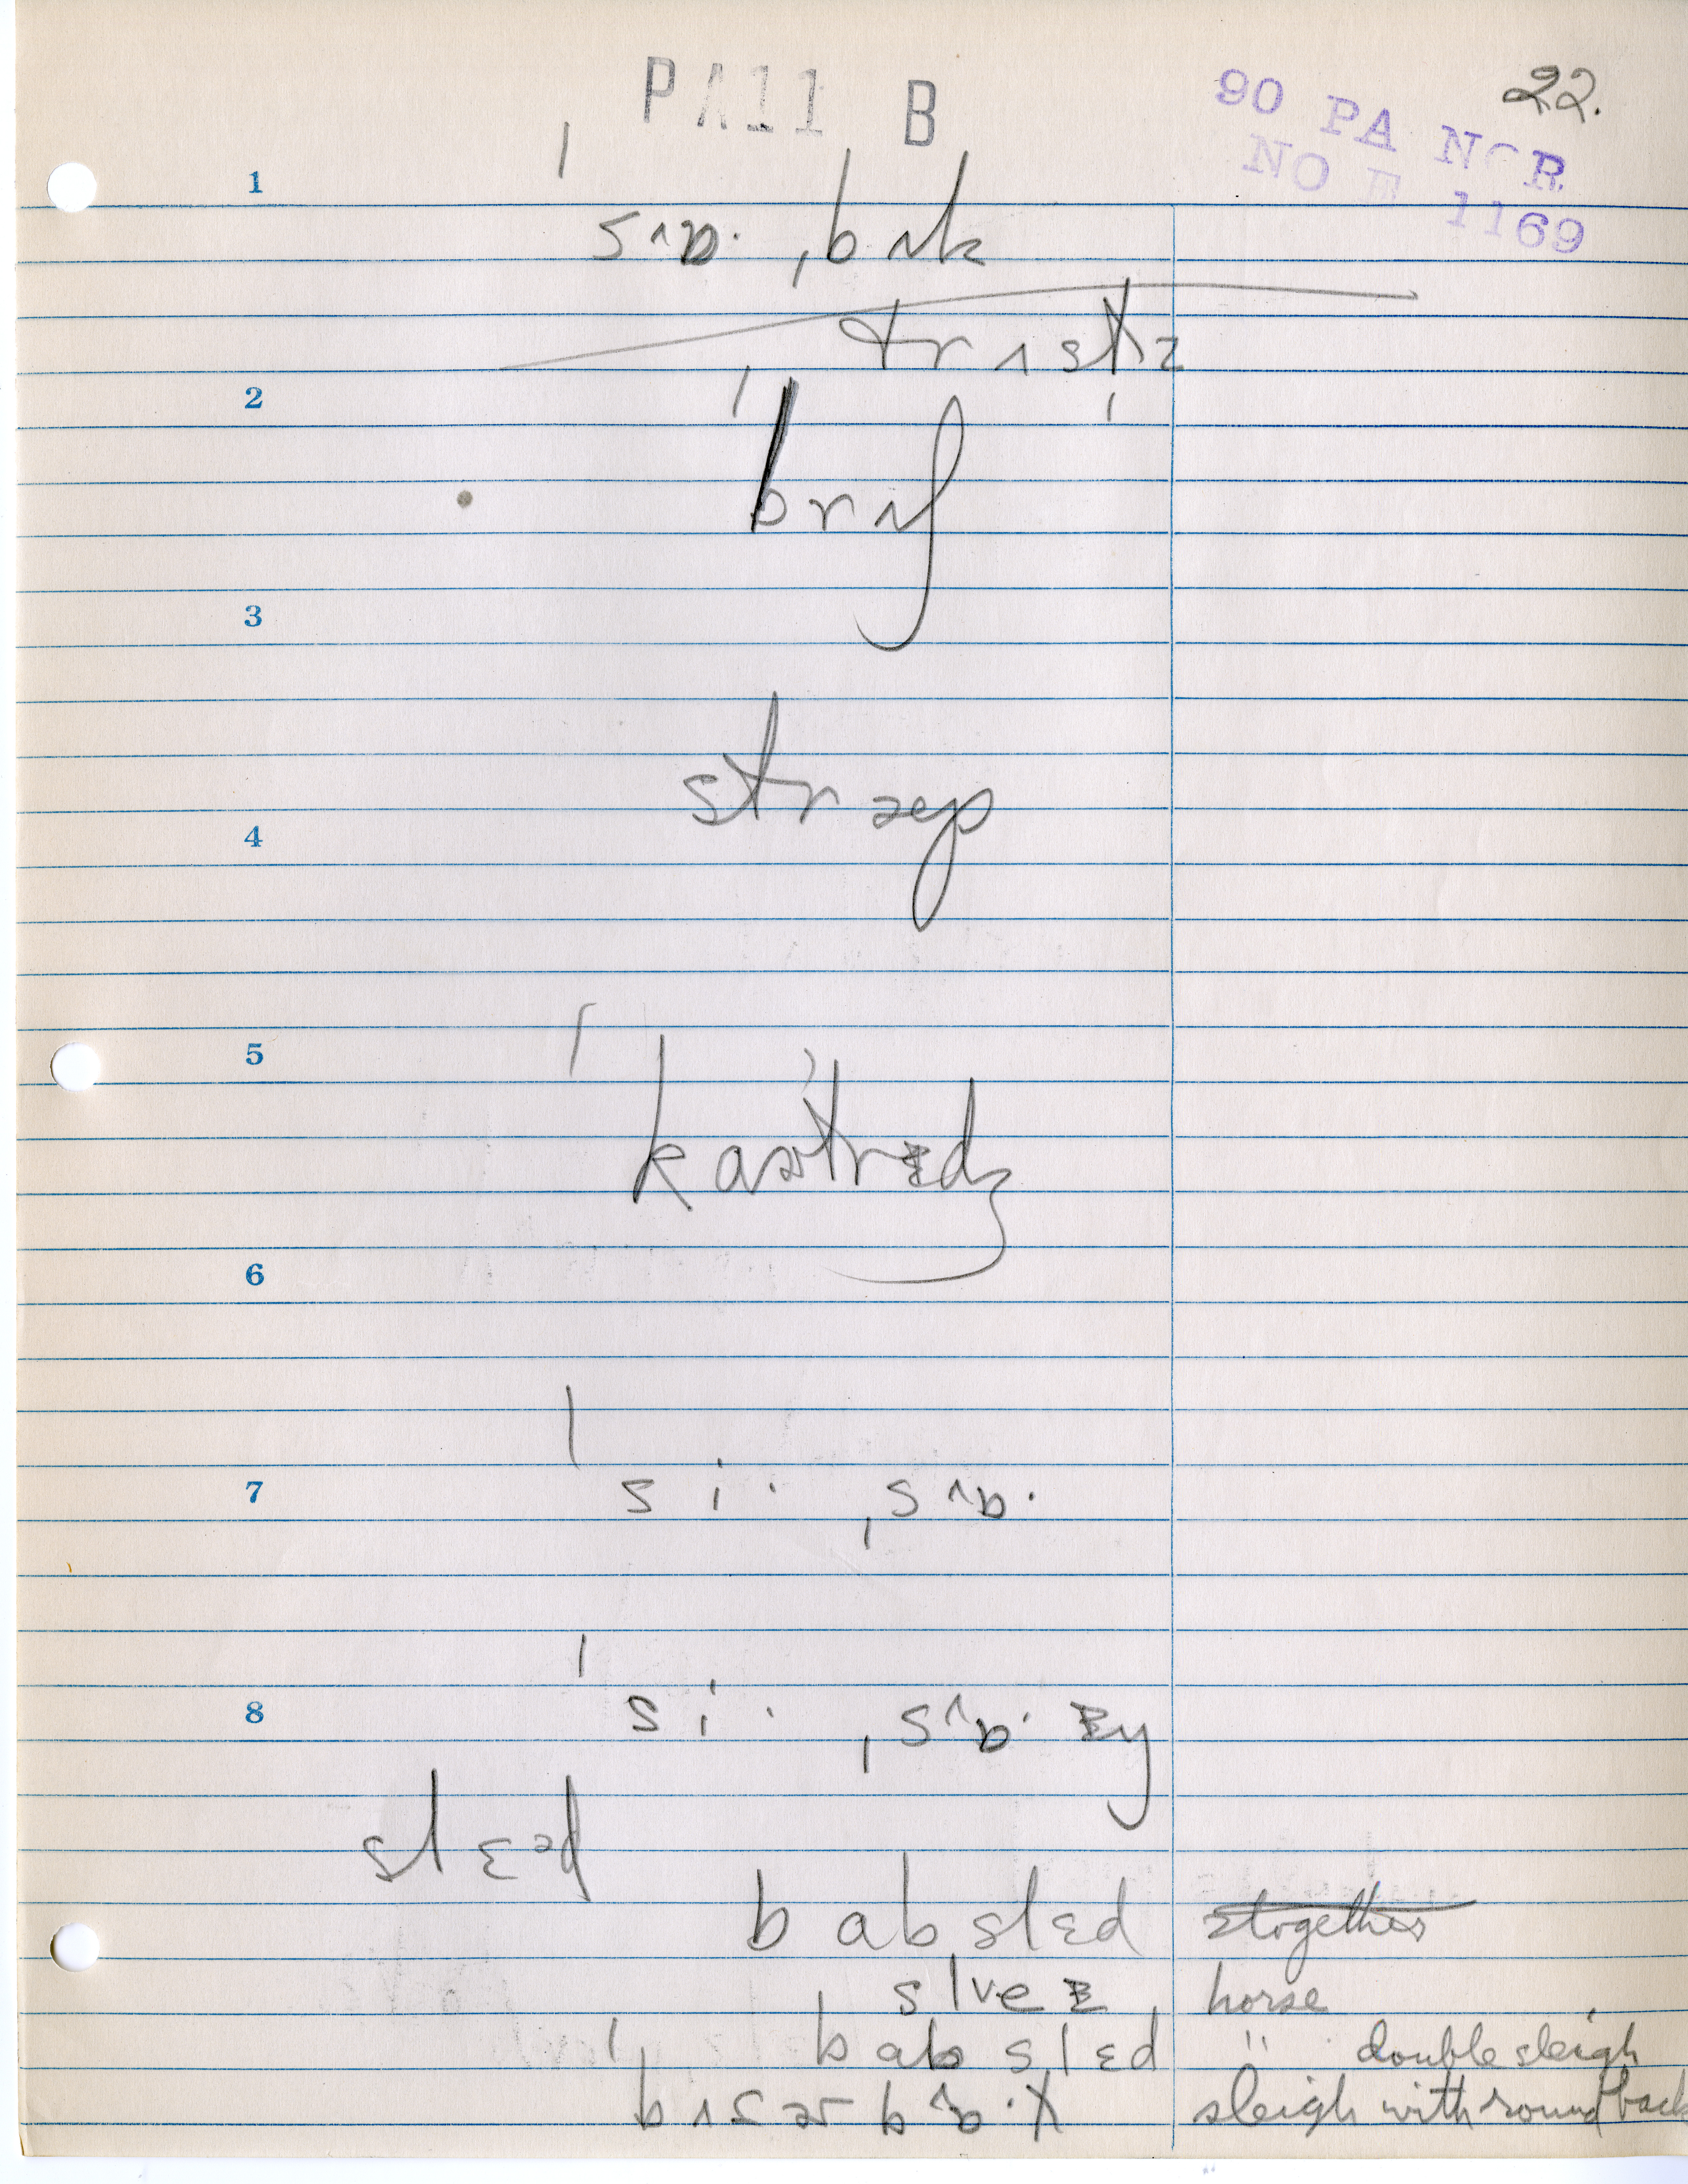 PA11 B
90 PA NOR
NO E 1169
22.
1
ˈsɒ· ˌbʌk
trʌstḷz
2
ˈbrɪʤ
3
stræp
4
5
ˈkɑɚtrɪdʒ
6
7
ˈsi· ˌsɒ·
8
ˈsi· ˌsɒ·ɪŋ
slɛəd
bɑbslɛd
together
slveɪ
horse
ˈbɑbslɛd
" double sleigh
sleigh with round back